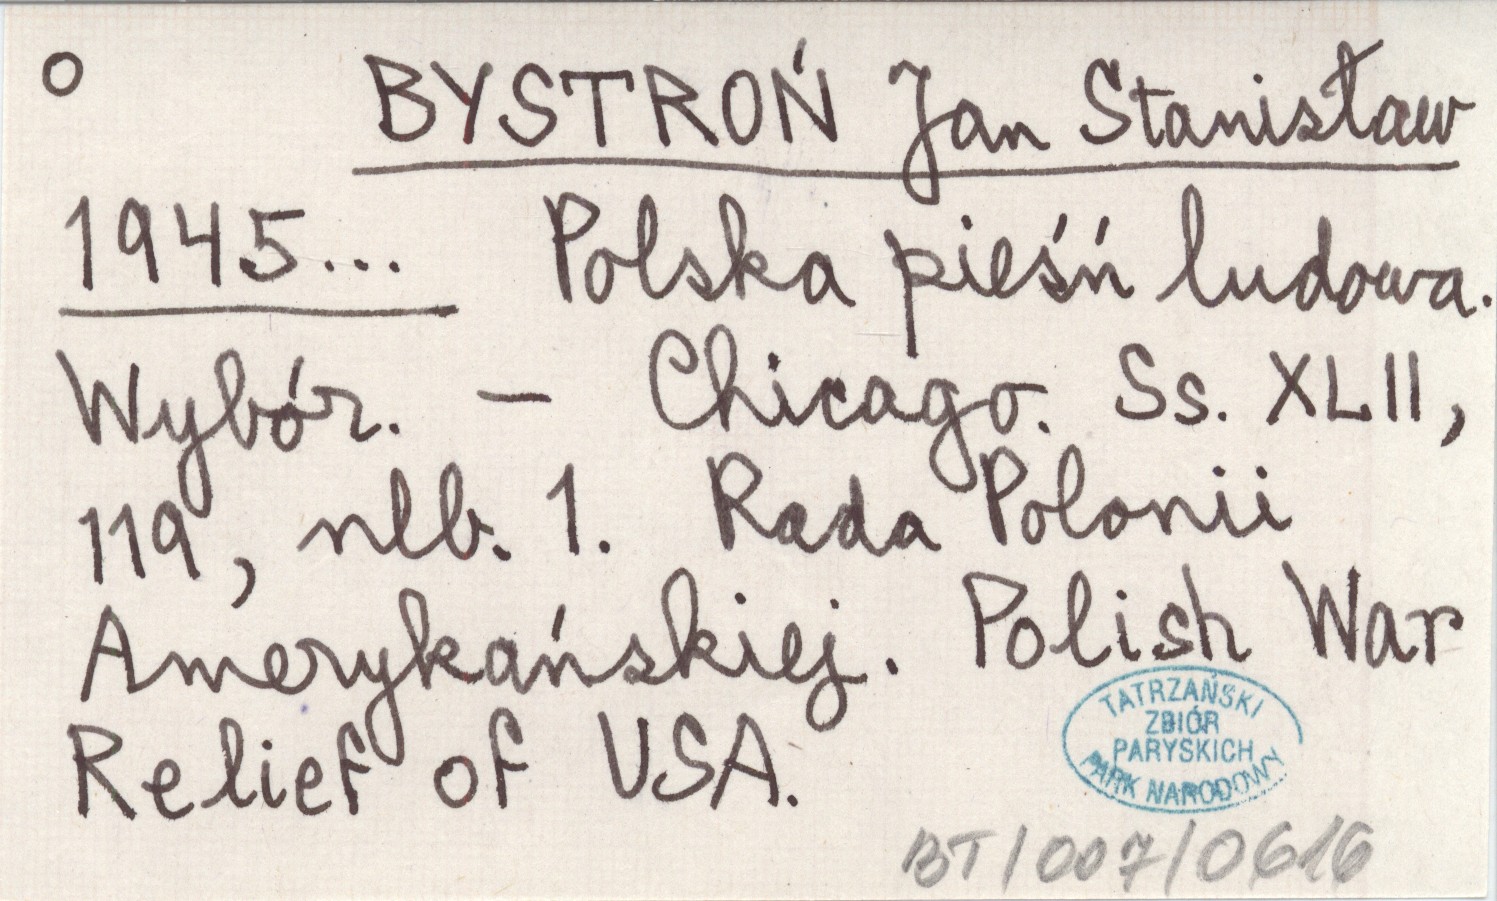 O BYSTROŃ Jan Stanisław
1945... Polska pieśń ludowa.
Wybór. – Chicago. Ss. XLII,
119, nlb. 1. Rada Polonii
Amerykańskiej. Polish War
Relief of USA.
TATRZAŃSKI
ZBIÓR
PARYSKICH
PARK NARODOWY
BT/007/0616